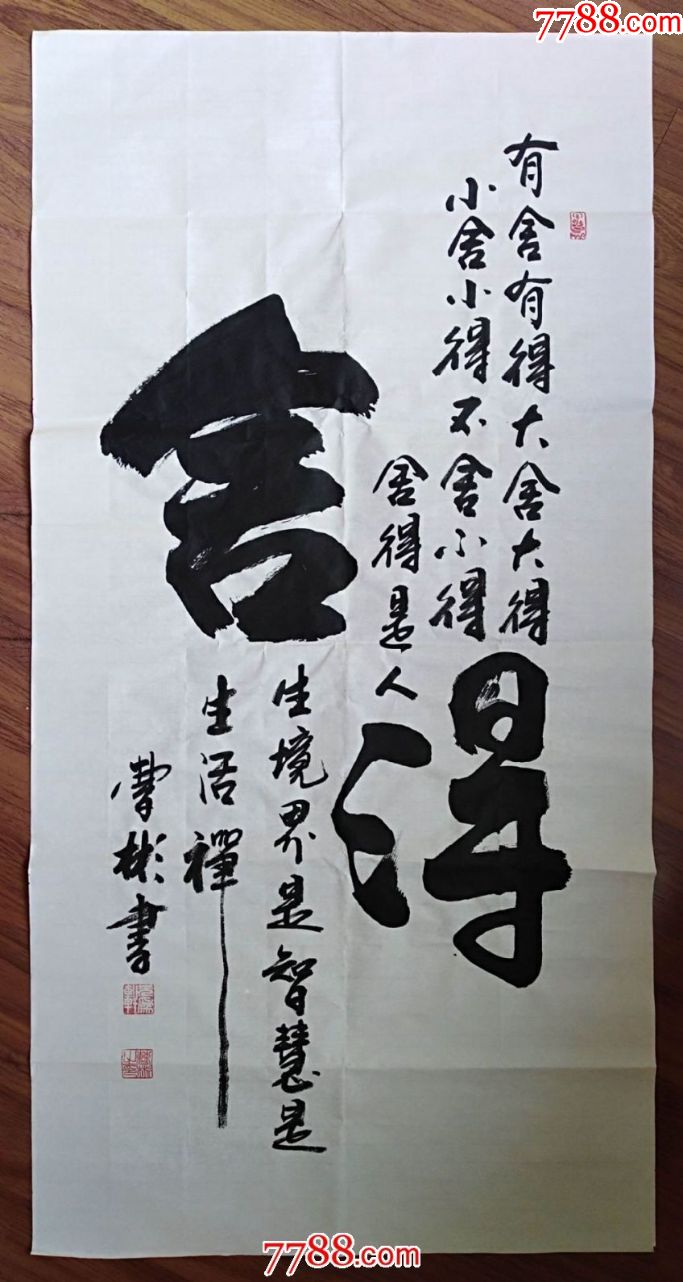 7788.com
有舍有得大舍大得
小舍小得不舍小得
舍得是人
得
舍
生境界是智慧是
生活禪
曹彬書
7788.com